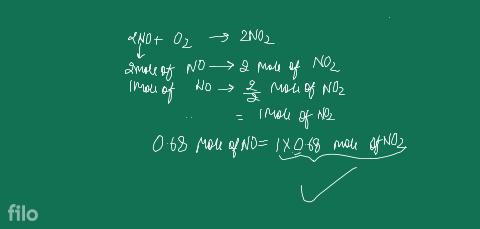 2NO + O₂ → 2NO₂
2mole of NO → 2 mole of NO₂
1mole of NO → 2/2 mole of NO₂
= 1mole of NO₂
0.68 mole of NO = 1 × 0.68 mole of NO₂
filo